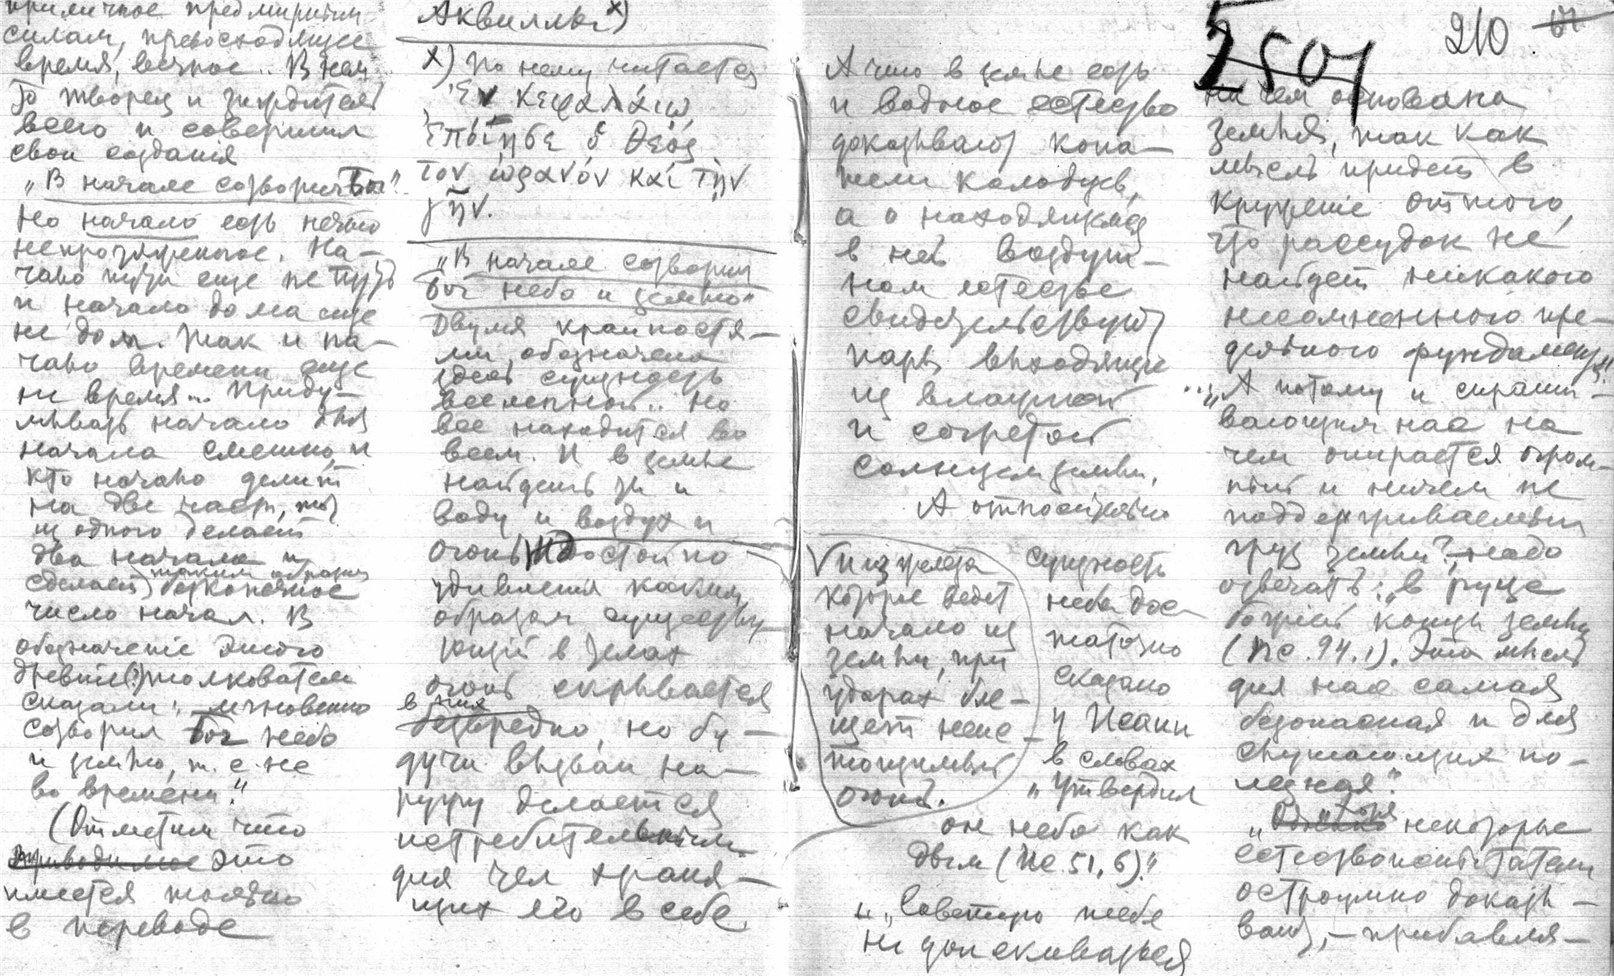 приличное предмирным
силам, превосходящее
время, вечное.. В нем
То творец и зиждитель
всего и совершил
свои созданія
"В начале сотворил Бог".
Но начало есть нечто
непротяженное. На-
чало пути еще не путь
и начало дома еще
не дом. Так и на-
чало времени еще
не время... Приду-
мывать начало для
начала смешно, и
кто начало делит
на две части, тот
из одного делает
два начала и
сделает таким образом безконечное
число начал. В
обозначеніе этого
древніе (?) толкователи
сказали: мгновенно
сотворил Бог небо
и землю, т.е. не
во времени."
(Отметим что
приводимое это
имеется только
в переводе
Аквиллы x)
x) По нему читается
Ἐν κεφαλάιῳ
Ἐπόιησε ὁ θεός
τον ὀυρανόν καί τήν
γῆν.
"В начале сотворил
Бог небо и землю"
Двумя крайностя-
ми обозначена
здесь сущность
вселенной.. Но
все находится во
всем. И в земле
найдешь ты и
воду и воздух и
огонь
Достойно
удивленія каким
образом существу-
ющій в телах
огонь скрывается
в них
безвредно, но бу-
дучи вызван на-
ружу делается
истребительным
для тел храня-
щих его в себе.
А что в земле есть
и водное естество
доказывают копа-
тели колодцев,
а о находящемся
в ней воздуш-
ном естестве
свидетельствуют
пары выходящие
из влажной
и согретой
солнцем земли.
V и из железа
которое ведет
начало из
земли, при
ударах бле-
щет неис-
тощимый
огонь.
А относительно
сущность
неба дос-
таточно
сказано
у Исаии
в словах
"Утвердил
он небо как
дым (Ис. 51, 6)."
"Советую тебе
не доискиваться
2507
210
на чем основана
земля, так как
мысль придет в
круженіе оттого,
что рассудок не
найдет никакого
несомненного пре-
дельного фундамента".
... "А потому и спраши-
вающим нас на
чем опирается огром-
ный и ничем не
поддерживаемый
груз земли?, надо
отвечать: "в руце
божіей концы земли
(Пс. 94. 1). Эта мысль
для нас самая
безопасная и для
слушающих по-
лезная".
"Хотя некоторые
естествоиспытатели
остроумно доказы-
вают, - прибавля-